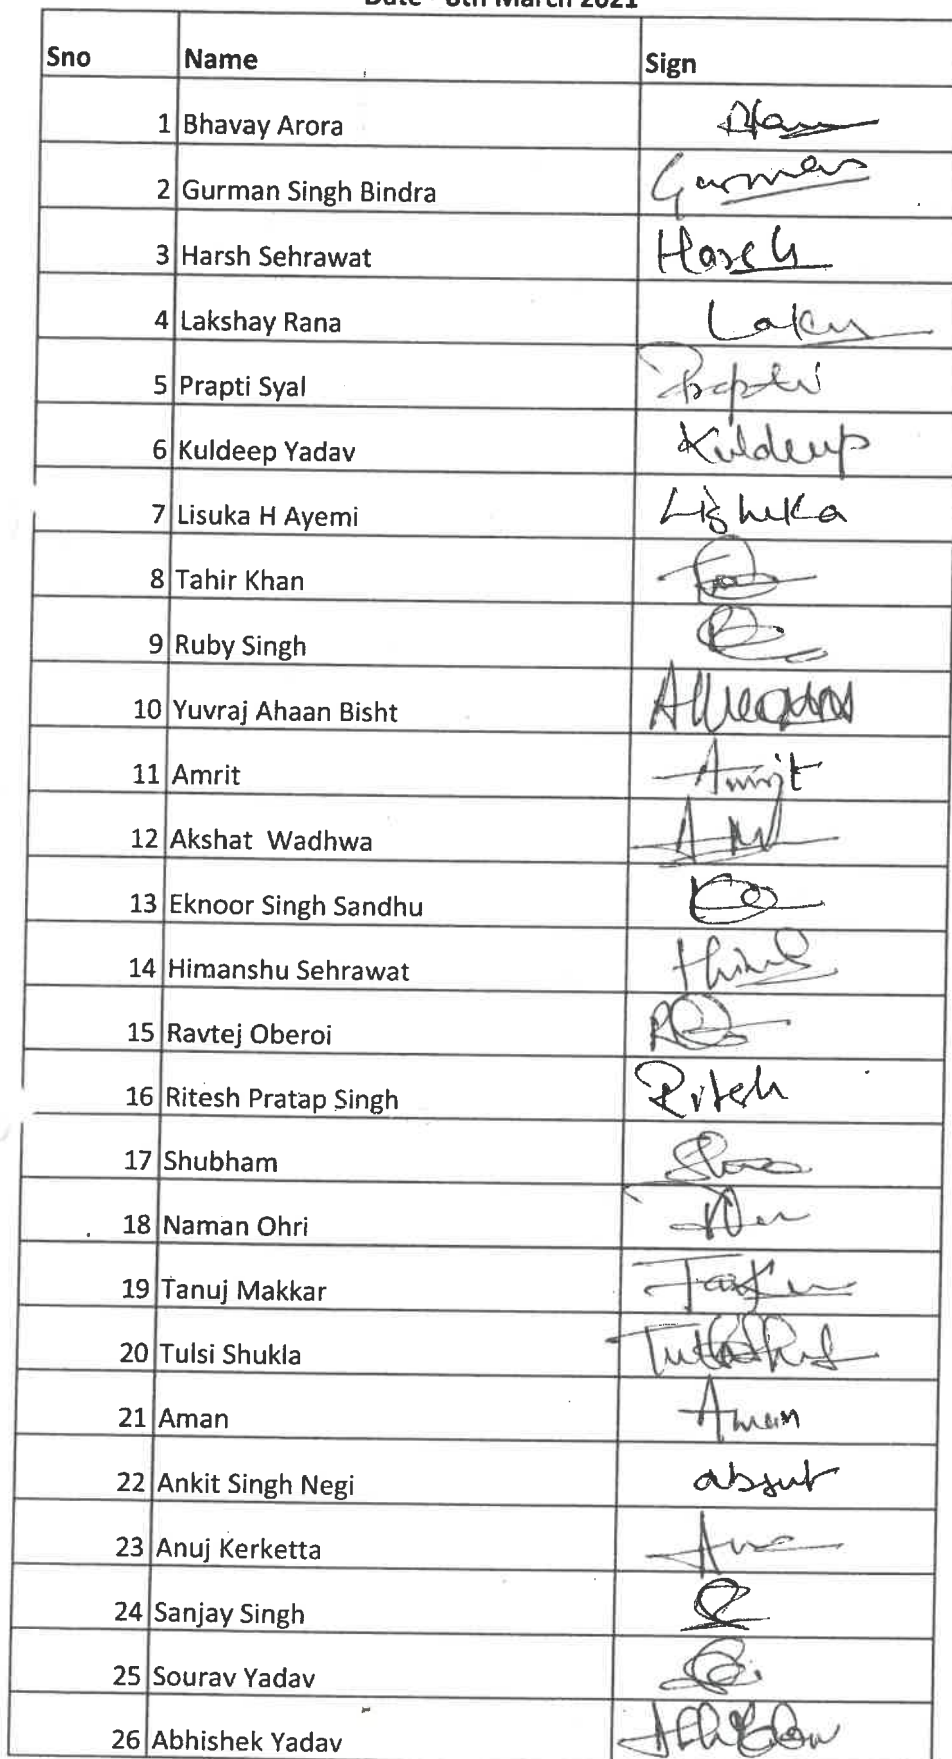 Date - 8th March 2021
Sno Name Sign
1 Bhavay Arora
2 Gurman Singh Bindra Gurman
3 Harsh Sehrawat Harsh
4 Lakshay Rana
5 Prapti Syal Prapti
6 Kuldeep Yadav Kuldeep
7 Lisuka H Ayemi Lishuka
8 Tahir Khan
9 Ruby Singh
10 Yuvraj Ahaan Bisht
11 Amrit Amrit
12 Akshat Wadhwa
13 Eknoor Singh Sandhu
14 Himanshu Sehrawat
15 Ravtej Oberoi
16 Ritesh Pratap Singh Ritesh
17 Shubham
18 Naman Ohri
19 Tanuj Makkar
20 Tulsi Shukla
21 Aman Aman
22 Ankit Singh Negi
23 Anuj Kerketta
24 Sanjay Singh
25 Sourav Yadav
26 Abhishek Yadav